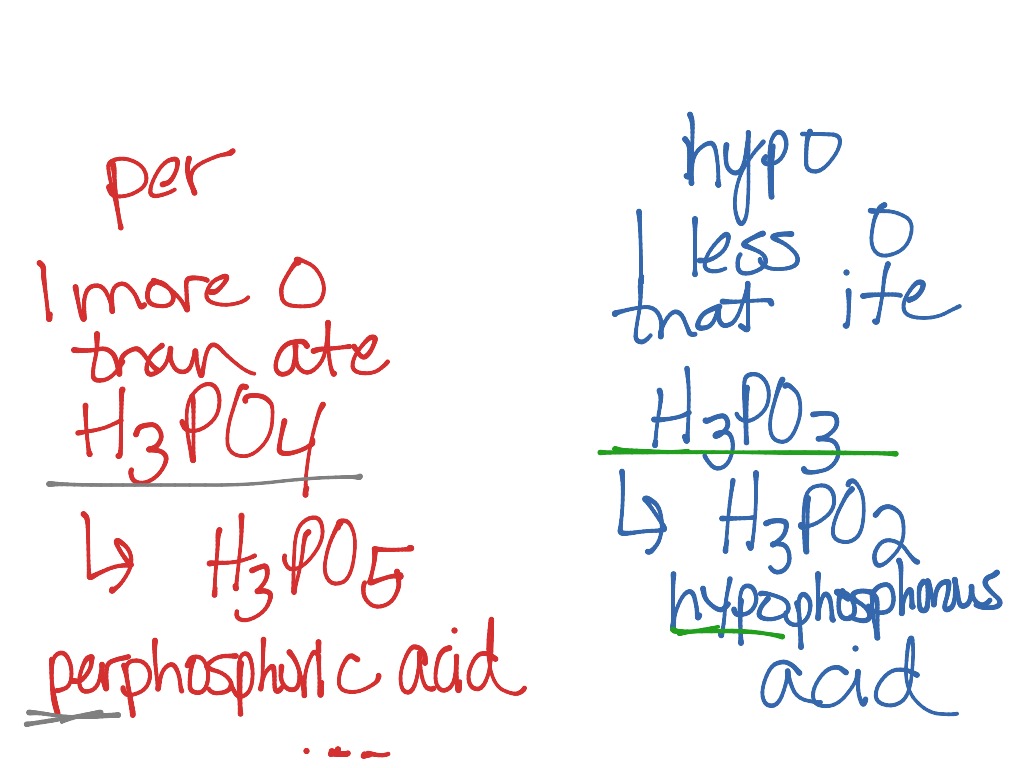 per
1 more O
than ate
H₃PO₄
↳ H₃PO₅
perphosphoric acid
hypo
1 less O
that ite
H₃PO₃
↳ H₃PO₂
hypophosphorus
acid